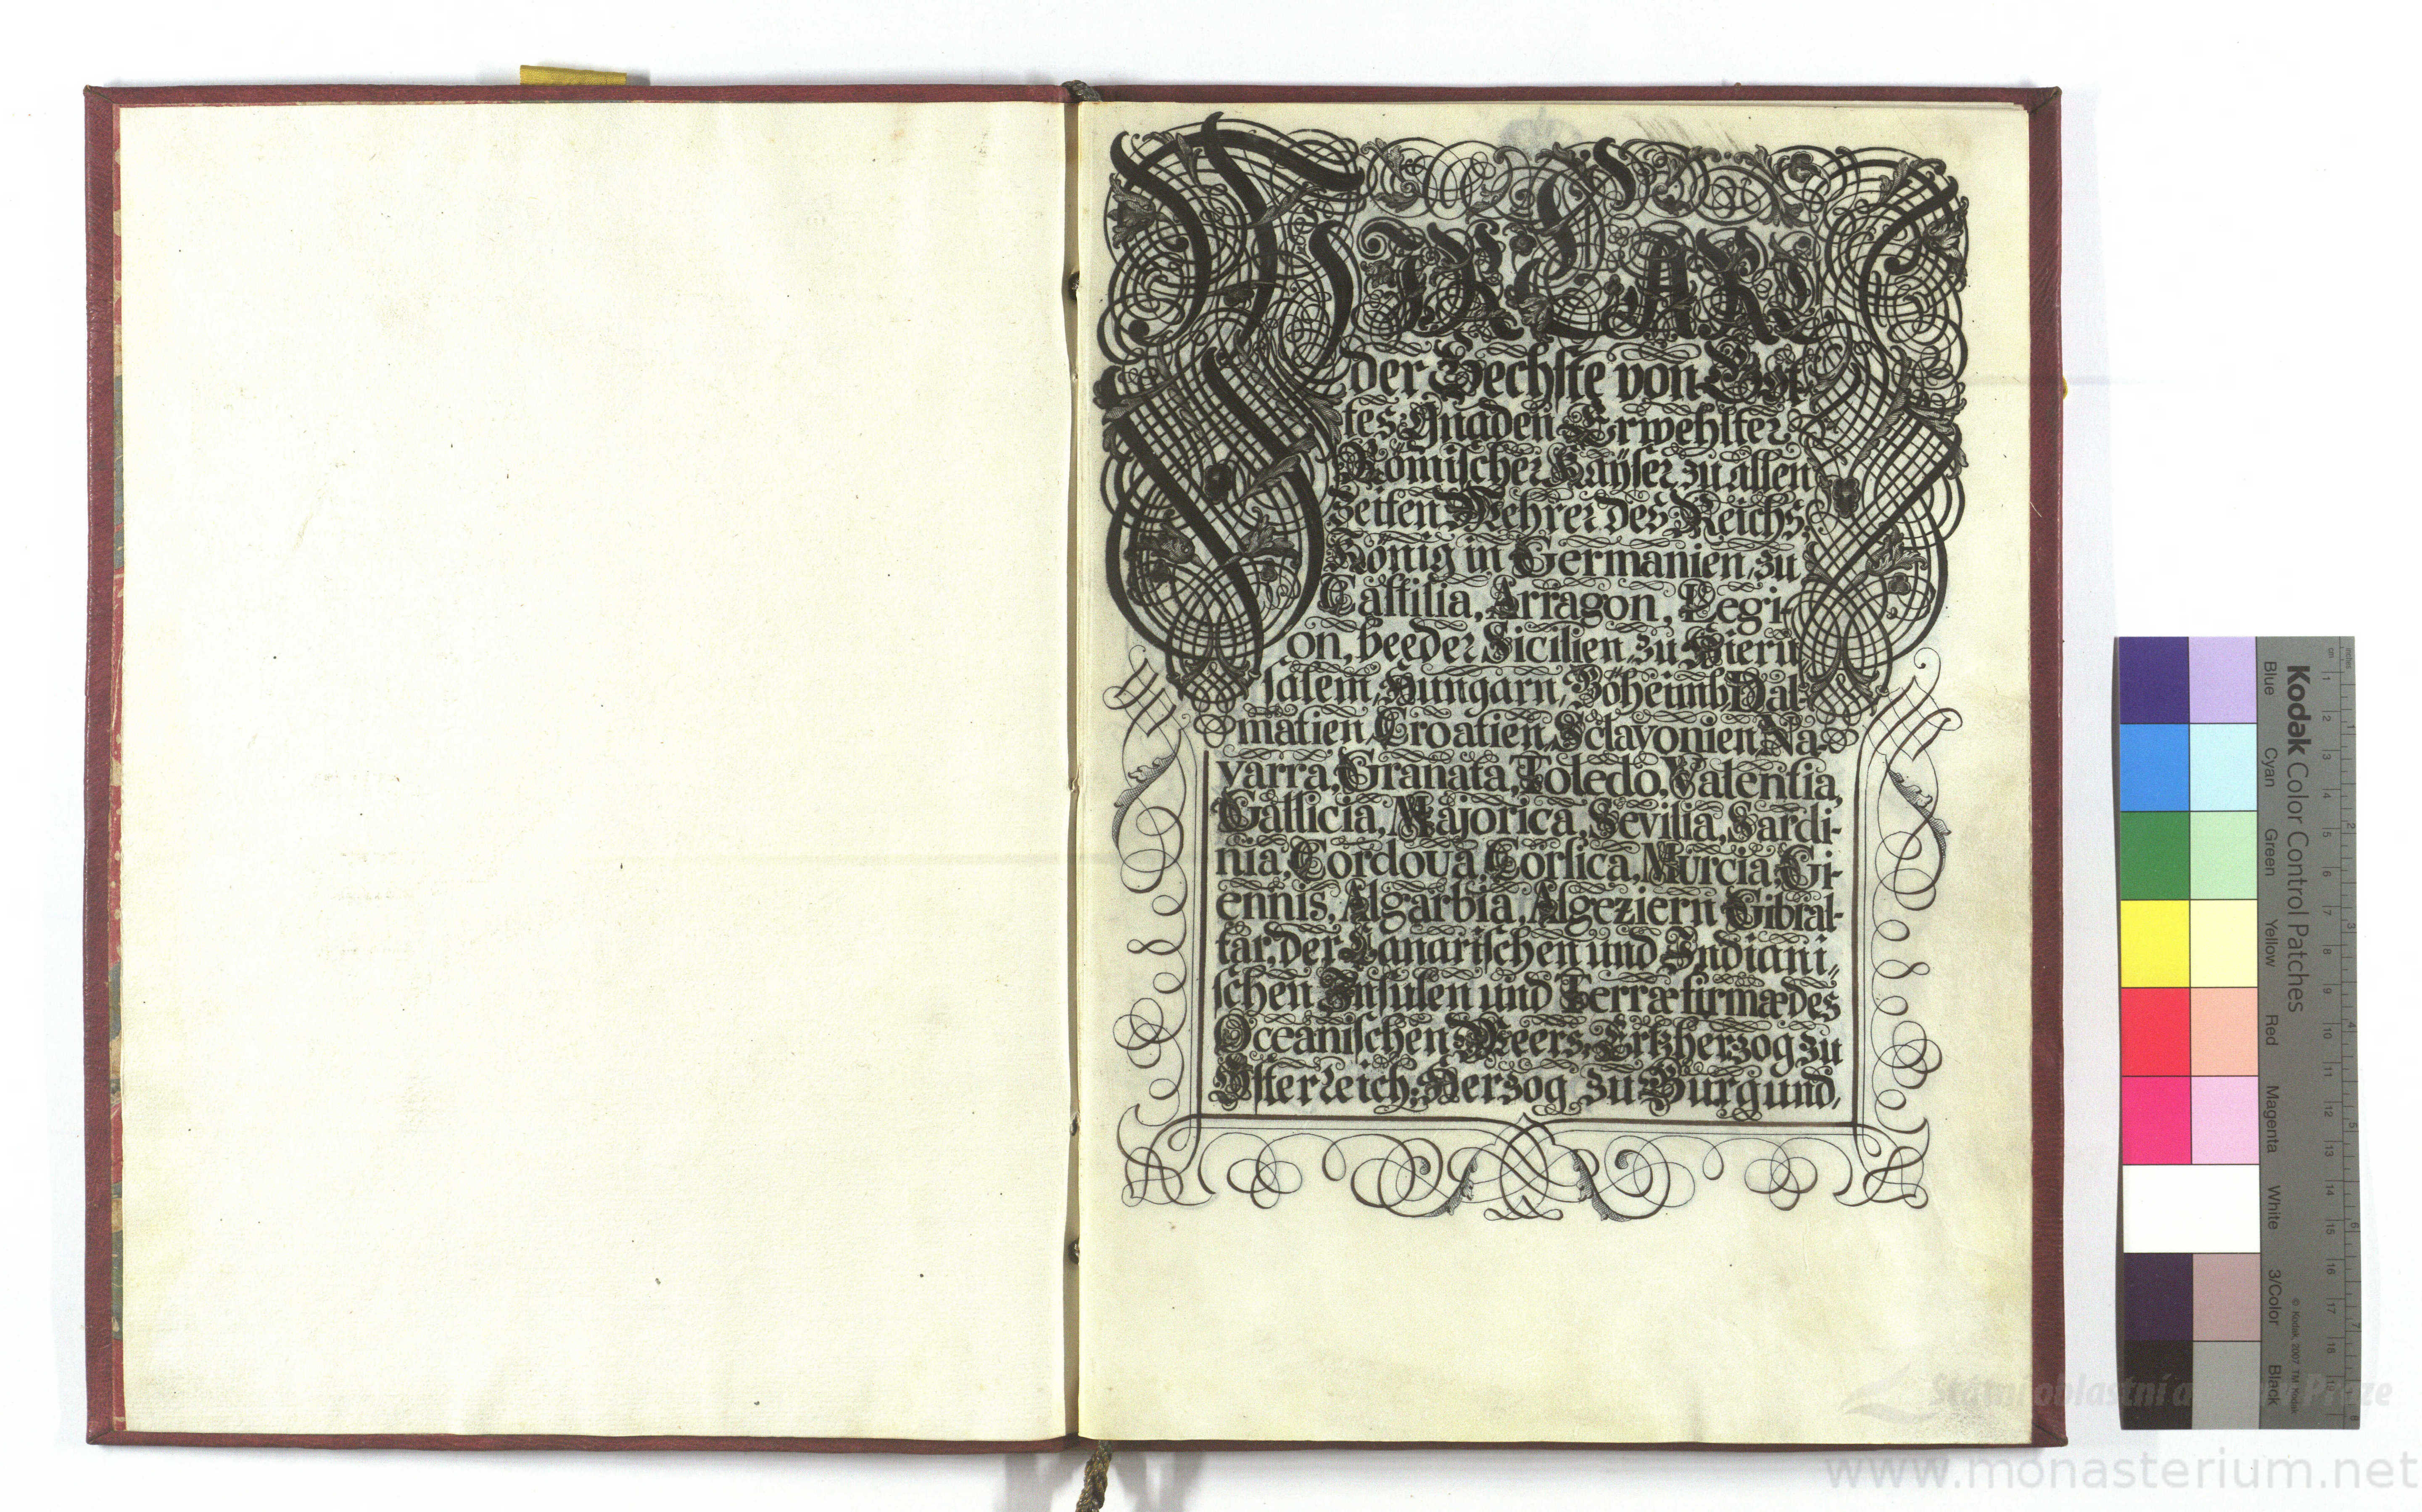 WIR CARL
der Sechste von Got-
tes Gnaden Erwehlter
Römischer Kaÿser zu allen
Zeiten Mehrer des Reichs,
König in Germanien, zu
Castilia, Arragon, Legi-
on, beeder Sicilien, zu Hieru-
salem, Hungarn, Böheimb, Dal-
matien, Croatien, Sclavonien, Na-
varra, Granata, Toledo, Valentia,
Gallicia, Majorica, Sevilia, Sardi-
nia, Cordova, Corsica, Murcia, Gi-
ennis, Algarbia, Algeziern, Gibral-
tar, der Canarischen und Indiani-
schen Insulen und Terræ firmæ des
Oceanischen Meers, Ertzherzog zu
Österreich, Herzog zu Burgund,
Kodak Color Control Patches
Blue
Cyan
Green
Yellow
Red
Magenta
White
3/Color
Black
© Kodak, 2007 TM: Kodak
inches
cm
1 2 3 4 5 6 7 8 9 10 11 12 13 14 15 16 17 18
1 2 3 4 5 6 7 8
Státní oblastní a Praze
www.monasterium.net